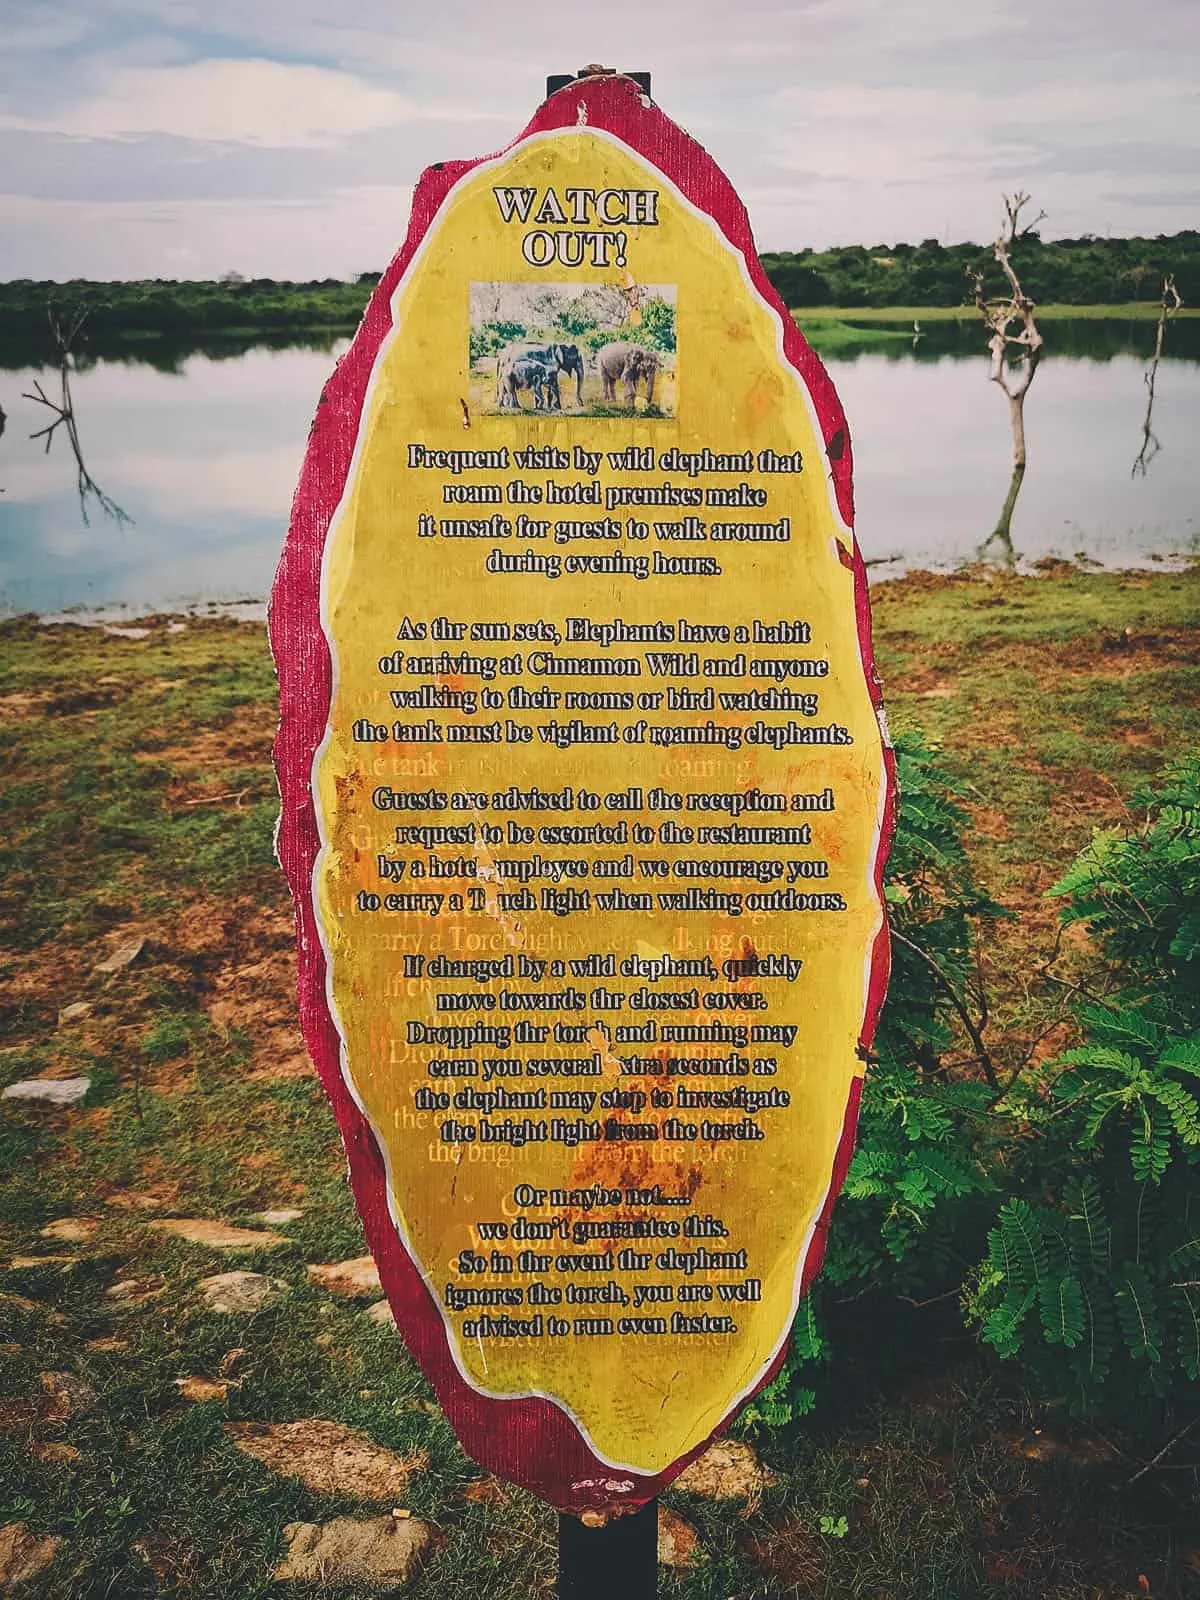 WATCH
OUT!
Frequent visits by wild elephant that
roam the hotel premises make
it unsafe for guests to walk around
during evening hours.
As thr sun sets, Elephants have a habit
of arriving at Cinnamon Wild and anyone
walking to their rooms or bird watching
the tank must be vigilant of roaming elephants.
Guests are advised to call the reception and
request to be escorted to the restaurant
by a hotel employee and we encourage you
to carry a light when walking outdoors.
If charged by a wild elephant, quickly
move towards thr closest cover.
Dropping thr torch and running may
earn you several extra seconds as
the elephant may stop to investigate
the bright light from the torch.
Or maybe not.....
we don't guarantee this.
So in thr event thr elephant
ignores the torch, you are well
advised to run even faster.